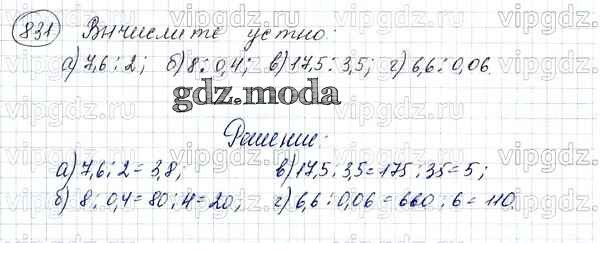 831 Вычислите устно:
а) 7,6 : 2; б) 8 : 0,4; в) 17,5 : 3,5; г) 6,6 : 0,06.
gdz.moda
Решение:
а) 7,6 : 2 = 3,8; в) 17,5 : 3,5 = 175 : 35 = 5;
б) 8 : 0,4 = 80 : 4 = 20; г) 6,6 : 0,06 = 660 : 6 = 110.
vipgdz.com